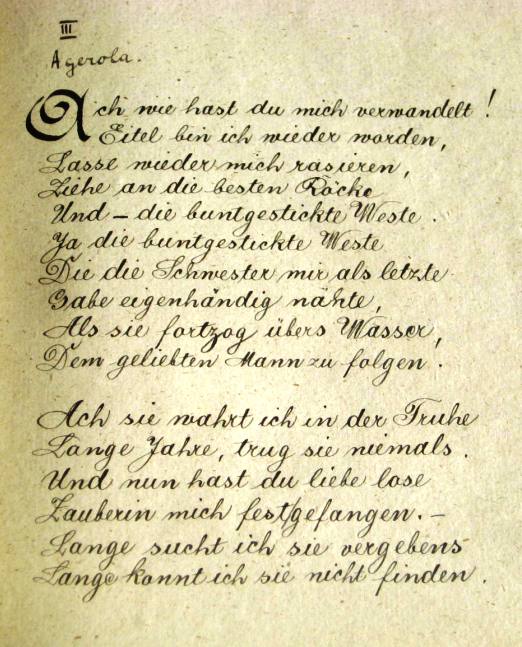 III
Agerola.
Ach wie hast du mich verwandelt!
Eitel bin ich wieder worden,
Lasse wieder mich rasieren,
Ziehe an die besten Röcke
Und – die buntgestickte Weste.
Ja die buntgestickte Weste
Die die Schwester mir als letzte
Gabe eigenhändig nähte,
Als sie fortzog übers Wasser,
Dem geliebten Mann zu folgen.
Ach sie wahrt ich in der Truhe
Lange Jahre, trug sie niemals.
Und nun hast du liebe lose
Zauberin mich fest/gefangen. –
Lange sucht ich sie vergebens
Lange konnt ich sie nicht finden.